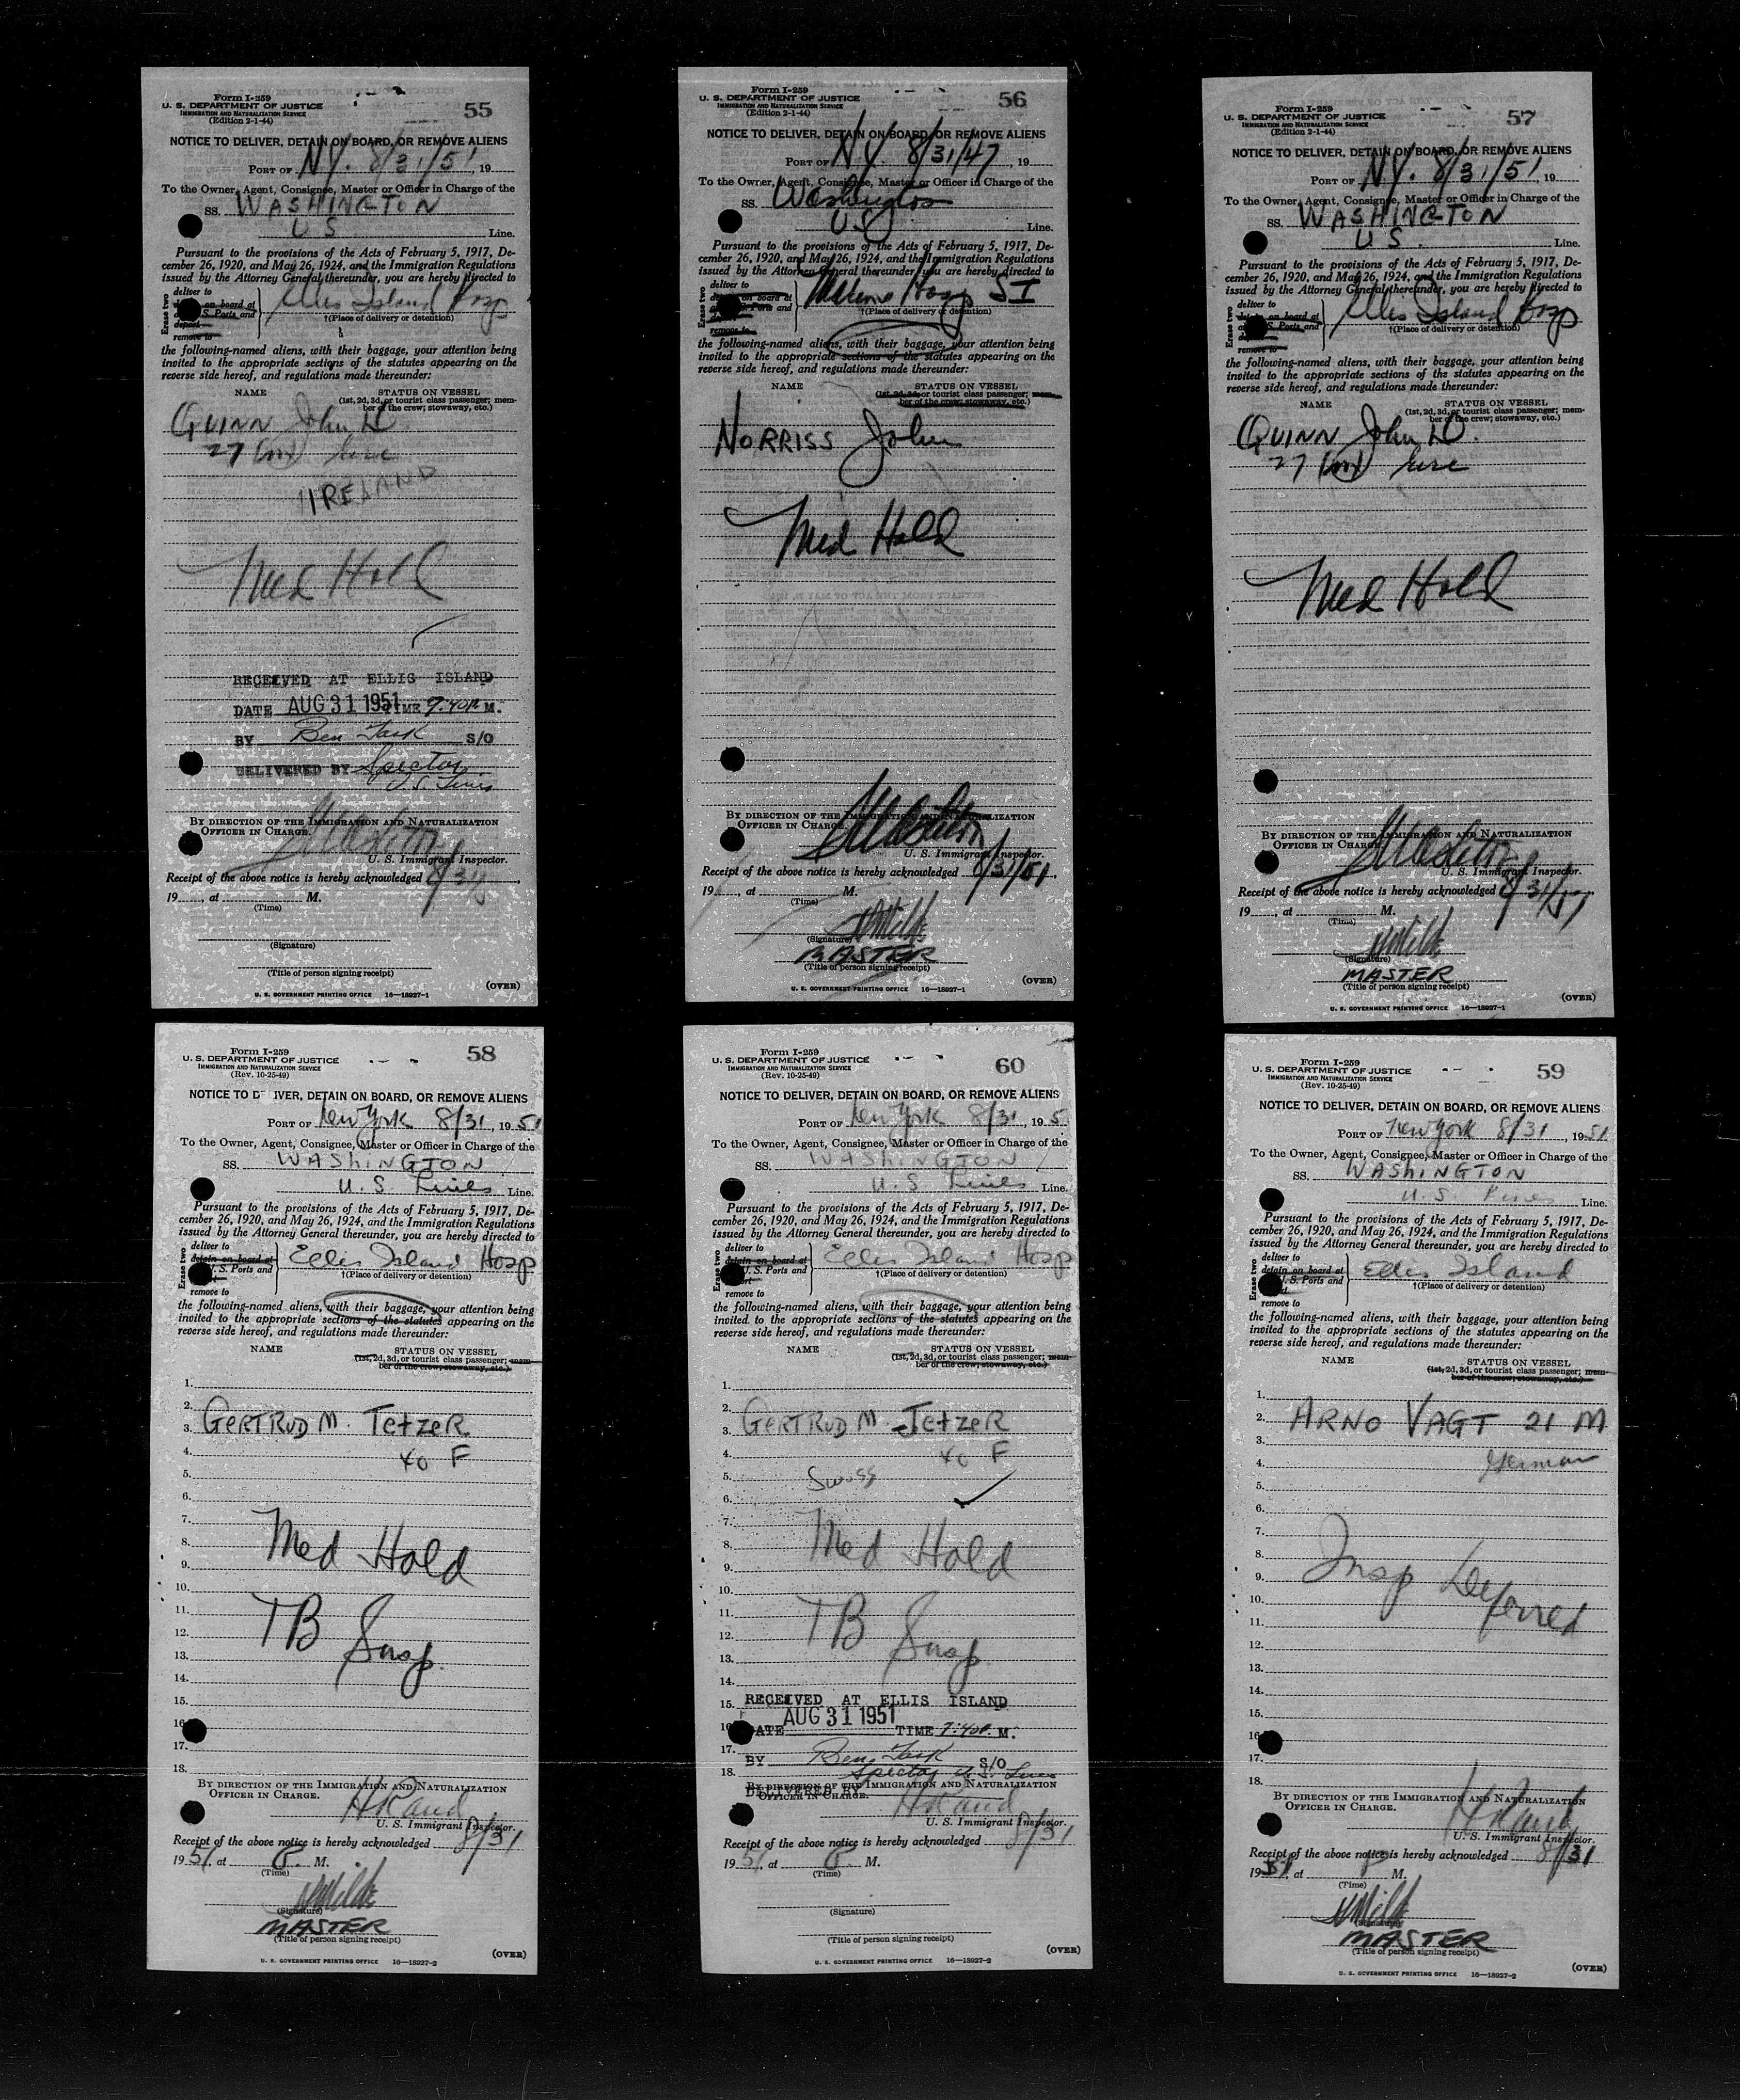 Form I-259
U. S. DEPARTMENT OF JUSTICE
IMMIGRATION AND NATURALIZATION SERVICE
(Edition 2-1-44)
55
NOTICE TO DELIVER, DETAIN ON BOARD, OR REMOVE ALIENS
PORT OF NY. 8/31/51, 19
To the Owner, Agent, Consignee, Master or Officer in Charge of the
SS. WASHINGTON
U S Line.
Pursuant to the provisions of the Acts of February 5, 1917, De-
cember 26, 1920, and May 26, 1924, and the Immigration Regulations
issued by the Attorney General thereunder, you are hereby directed to
Erase two
deliver to
on board at
S. Ports and
deport
remove to
Ellis Island Hosp
†(Place of delivery or detention)
the following-named aliens, with their baggage, your attention being
invited to the appropriate sections of the statutes appearing on the
reverse side hereof, and regulations made thereunder:
NAME STATUS ON VESSEL
(1st, 2d, 3d, or tourist class passenger; mem-
ber of the crew; stowaway, etc.)
QUINN John D
27 (m) Eire
IRELAND
Med Hold
RECEIVED AT ELLIS ISLAND
DATE AUG 31 1951 TIME 7:40P M.
BY Ben Task S/O
DELIVERED BY Spector
U.S. Lines
BY DIRECTION OF THE IMMIGRATION AND NATURALIZATION
OFFICER IN CHARGE.
U. S. Immigrant Inspector.
Receipt of the above notice is hereby acknowledged 8/31
19, at M.
(Time)
(Signature)
(Title of person signing receipt)
(OVER)
U. S. GOVERNMENT PRINTING OFFICE 16—18927-1
Form I-259
U. S. DEPARTMENT OF JUSTICE
IMMIGRATION AND NATURALIZATION SERVICE
(Edition 2-1-44)
56
NOTICE TO DELIVER, DETAIN ON BOARD, OR REMOVE ALIENS
PORT OF NY. 8/31/47, 19
To the Owner, Agent, Consignee, Master or Officer in Charge of the
SS. Washington
US Line.
Pursuant to the provisions of the Acts of February 5, 1917, De-
cember 26, 1920, and May 26, 1924, and the Immigration Regulations
issued by the Attorney General thereunder, you are hereby directed to
Erase two
deliver to
on board at
Ports and
remove to
Marine Hosp SI
†(Place of delivery or detention)
the following-named aliens, with their baggage, your attention being
invited to the appropriate sections of the statutes appearing on the
reverse side hereof, and regulations made thereunder:
NAME STATUS ON VESSEL
(1st, 2d, 3d, or tourist class passenger; mem-
ber of the crew; stowaway, etc.)
NORRISS John
Med Hold
BY DIRECTION OF THE IMMIGRATION AND NATURALIZATION
OFFICER IN CHARGE.
U. S. Immigrant Inspector.
Receipt of the above notice is hereby acknowledged 8/31/51,
19, at M.
(Time)
(Signature)
MASTER
(Title of person signing receipt)
(OVER)
U. S. GOVERNMENT PRINTING OFFICE 16—18927-1
Form I-259
U. S. DEPARTMENT OF JUSTICE
IMMIGRATION AND NATURALIZATION SERVICE
(Edition 2-1-44)
57
NOTICE TO DELIVER, DETAIN ON BOARD, OR REMOVE ALIENS
PORT OF NY. 8/31/51, 19
To the Owner, Agent, Consignee, Master or Officer in Charge of the
SS. WASHINGTON
U S. Line.
Pursuant to the provisions of the Acts of February 5, 1917, De-
cember 26, 1920, and May 26, 1924, and the Immigration Regulations
issued by the Attorney General thereunder, you are hereby directed to
Erase two
deliver to
on board at
S. Ports and
remove to
Ellis Island Hosp
†(Place of delivery or detention)
the following-named aliens, with their baggage, your attention being
invited to the appropriate sections of the statutes appearing on the
reverse side hereof, and regulations made thereunder:
NAME STATUS ON VESSEL
(1st, 2d, 3d, or tourist class passenger; mem-
ber of the crew; stowaway, etc.)
QUINN John D.
27 (m) Eire
Med Hold
BY DIRECTION OF THE IMMIGRATION AND NATURALIZATION
OFFICER IN CHARGE.
U. S. Immigrant Inspector.
Receipt of the above notice is hereby acknowledged 8/31/51,
19, at M.
(Time)
(Signature)
MASTER
(Title of person signing receipt)
(OVER)
U. S. GOVERNMENT PRINTING OFFICE 16—18927-1
Form I-259
U. S. DEPARTMENT OF JUSTICE
IMMIGRATION AND NATURALIZATION SERVICE
(Rev. 10-25-49)
58
NOTICE TO D IVER, DETAIN ON BOARD, OR REMOVE ALIENS
PORT OF New York 8/31, 1951
To the Owner, Agent, Consignee, Master or Officer in Charge of the
SS. WASHINGTON
U.S. Lines Line.
Pursuant to the provisions of the Acts of February 5, 1917, De-
cember 26, 1920, and May 26, 1924, and the Immigration Regulations
issued by the Attorney General thereunder, you are hereby directed to
Erase two
deliver to
detain on board at
U.S. Ports and
remove to
Ellis Island Hosp
†(Place of delivery or detention)
the following-named aliens, with their baggage, your attention being
invited to the appropriate sections of the statutes appearing on the
reverse side hereof, and regulations made thereunder:
NAME STATUS ON VESSEL
(1st, 2d, 3d, or tourist class passenger; mem-
ber of the crew; stowaway, etc.)
1.
2.
3. GERTRUD M. TetzeR
4. 40 F
5.
6.
7.
8. Med Hold
9.
10.
11.
12. TB Susp.
13.
14.
15.
16.
17.
18.
BY DIRECTION OF THE IMMIGRATION AND NATURALIZATION
OFFICER IN CHARGE.
H Rand
U. S. Immigrant Inspector.
Receipt of the above notice is hereby acknowledged 8/31
1951, at P. M.
(Time)
(Signature)
MASTER
(Title of person signing receipt)
(OVER)
U. S. GOVERNMENT PRINTING OFFICE 16—18927-2
Form I-259
U. S. DEPARTMENT OF JUSTICE
IMMIGRATION AND NATURALIZATION SERVICE
(Rev. 10-25-49)
60
NOTICE TO DELIVER, DETAIN ON BOARD, OR REMOVE ALIENS
PORT OF New York 8/31, 195
To the Owner, Agent, Consignee, Master or Officer in Charge of the
SS. WASHINGTON
U.S. Lines Line.
Pursuant to the provisions of the Acts of February 5, 1917, De-
cember 26, 1920, and May 26, 1924, and the Immigration Regulations
issued by the Attorney General thereunder, you are hereby directed to
Erase two
deliver to
detain on board at
U.S. Ports and
remove to
Ellis Island Hosp
†(Place of delivery or detention)
the following-named aliens, with their baggage, your attention being
invited to the appropriate sections of the statutes appearing on the
reverse side hereof, and regulations made thereunder:
NAME STATUS ON VESSEL
(1st, 2d, 3d, or tourist class passenger; mem-
ber of the crew; stowaway, etc.)
1.
2.
3. GERTRUD M. TetzeR
4. 40 F
5. Swiss
6.
7.
8. Med Hold
9.
10.
11.
12. TB Susp
13.
14.
15. RECEIVED AT ELLIS ISLAND
AUG 31 1951
16. DATE TIME 7:40P. M.
17. BY Ben Task S/O
18. Spector U.S. Lines
DELIVERED BY
BY DIRECTION OF THE IMMIGRATION AND NATURALIZATION
OFFICER IN CHARGE.
H Rand
U. S. Immigrant Inspector.
Receipt of the above notice is hereby acknowledged 8/31
1951, at P. M.
(Time)
(Signature)
(Title of person signing receipt)
(OVER)
U. S. GOVERNMENT PRINTING OFFICE 16—18927-2
Form I-259
U. S. DEPARTMENT OF JUSTICE
IMMIGRATION AND NATURALIZATION SERVICE
(Rev. 10-25-49)
59
NOTICE TO DELIVER, DETAIN ON BOARD, OR REMOVE ALIENS
PORT OF New York 8/31, 1951
To the Owner, Agent, Consignee, Master or Officer in Charge of the
SS. WASHINGTON
U.S. Lines Line.
Pursuant to the provisions of the Acts of February 5, 1917, De-
cember 26, 1920, and May 26, 1924, and the Immigration Regulations
issued by the Attorney General thereunder, you are hereby directed to
Erase two
deliver to
detain on board at
U.S. Ports and
remove to
Ellis Island
†(Place of delivery or detention)
the following-named aliens, with their baggage, your attention being
invited to the appropriate sections of the statutes appearing on the
reverse side hereof, and regulations made thereunder:
NAME STATUS ON VESSEL
(1st, 2d, 3d, or tourist class passenger; mem-
ber of the crew; stowaway, etc.)
1.
2. ARNO VAGT 21 M
3.
4. German
5.
6.
7.
8.
9. Insp Deferred
10.
11.
12.
13.
14.
15.
16.
17.
18.
BY DIRECTION OF THE IMMIGRATION AND NATURALIZATION
OFFICER IN CHARGE.
H Rand
U. S. Immigrant Inspector.
Receipt of the above notice is hereby acknowledged 8/31
1951, at P M.
(Time)
(Signature)
MASTER
(Title of person signing receipt)
(OVER)
U. S. GOVERNMENT PRINTING OFFICE 16—18927-2